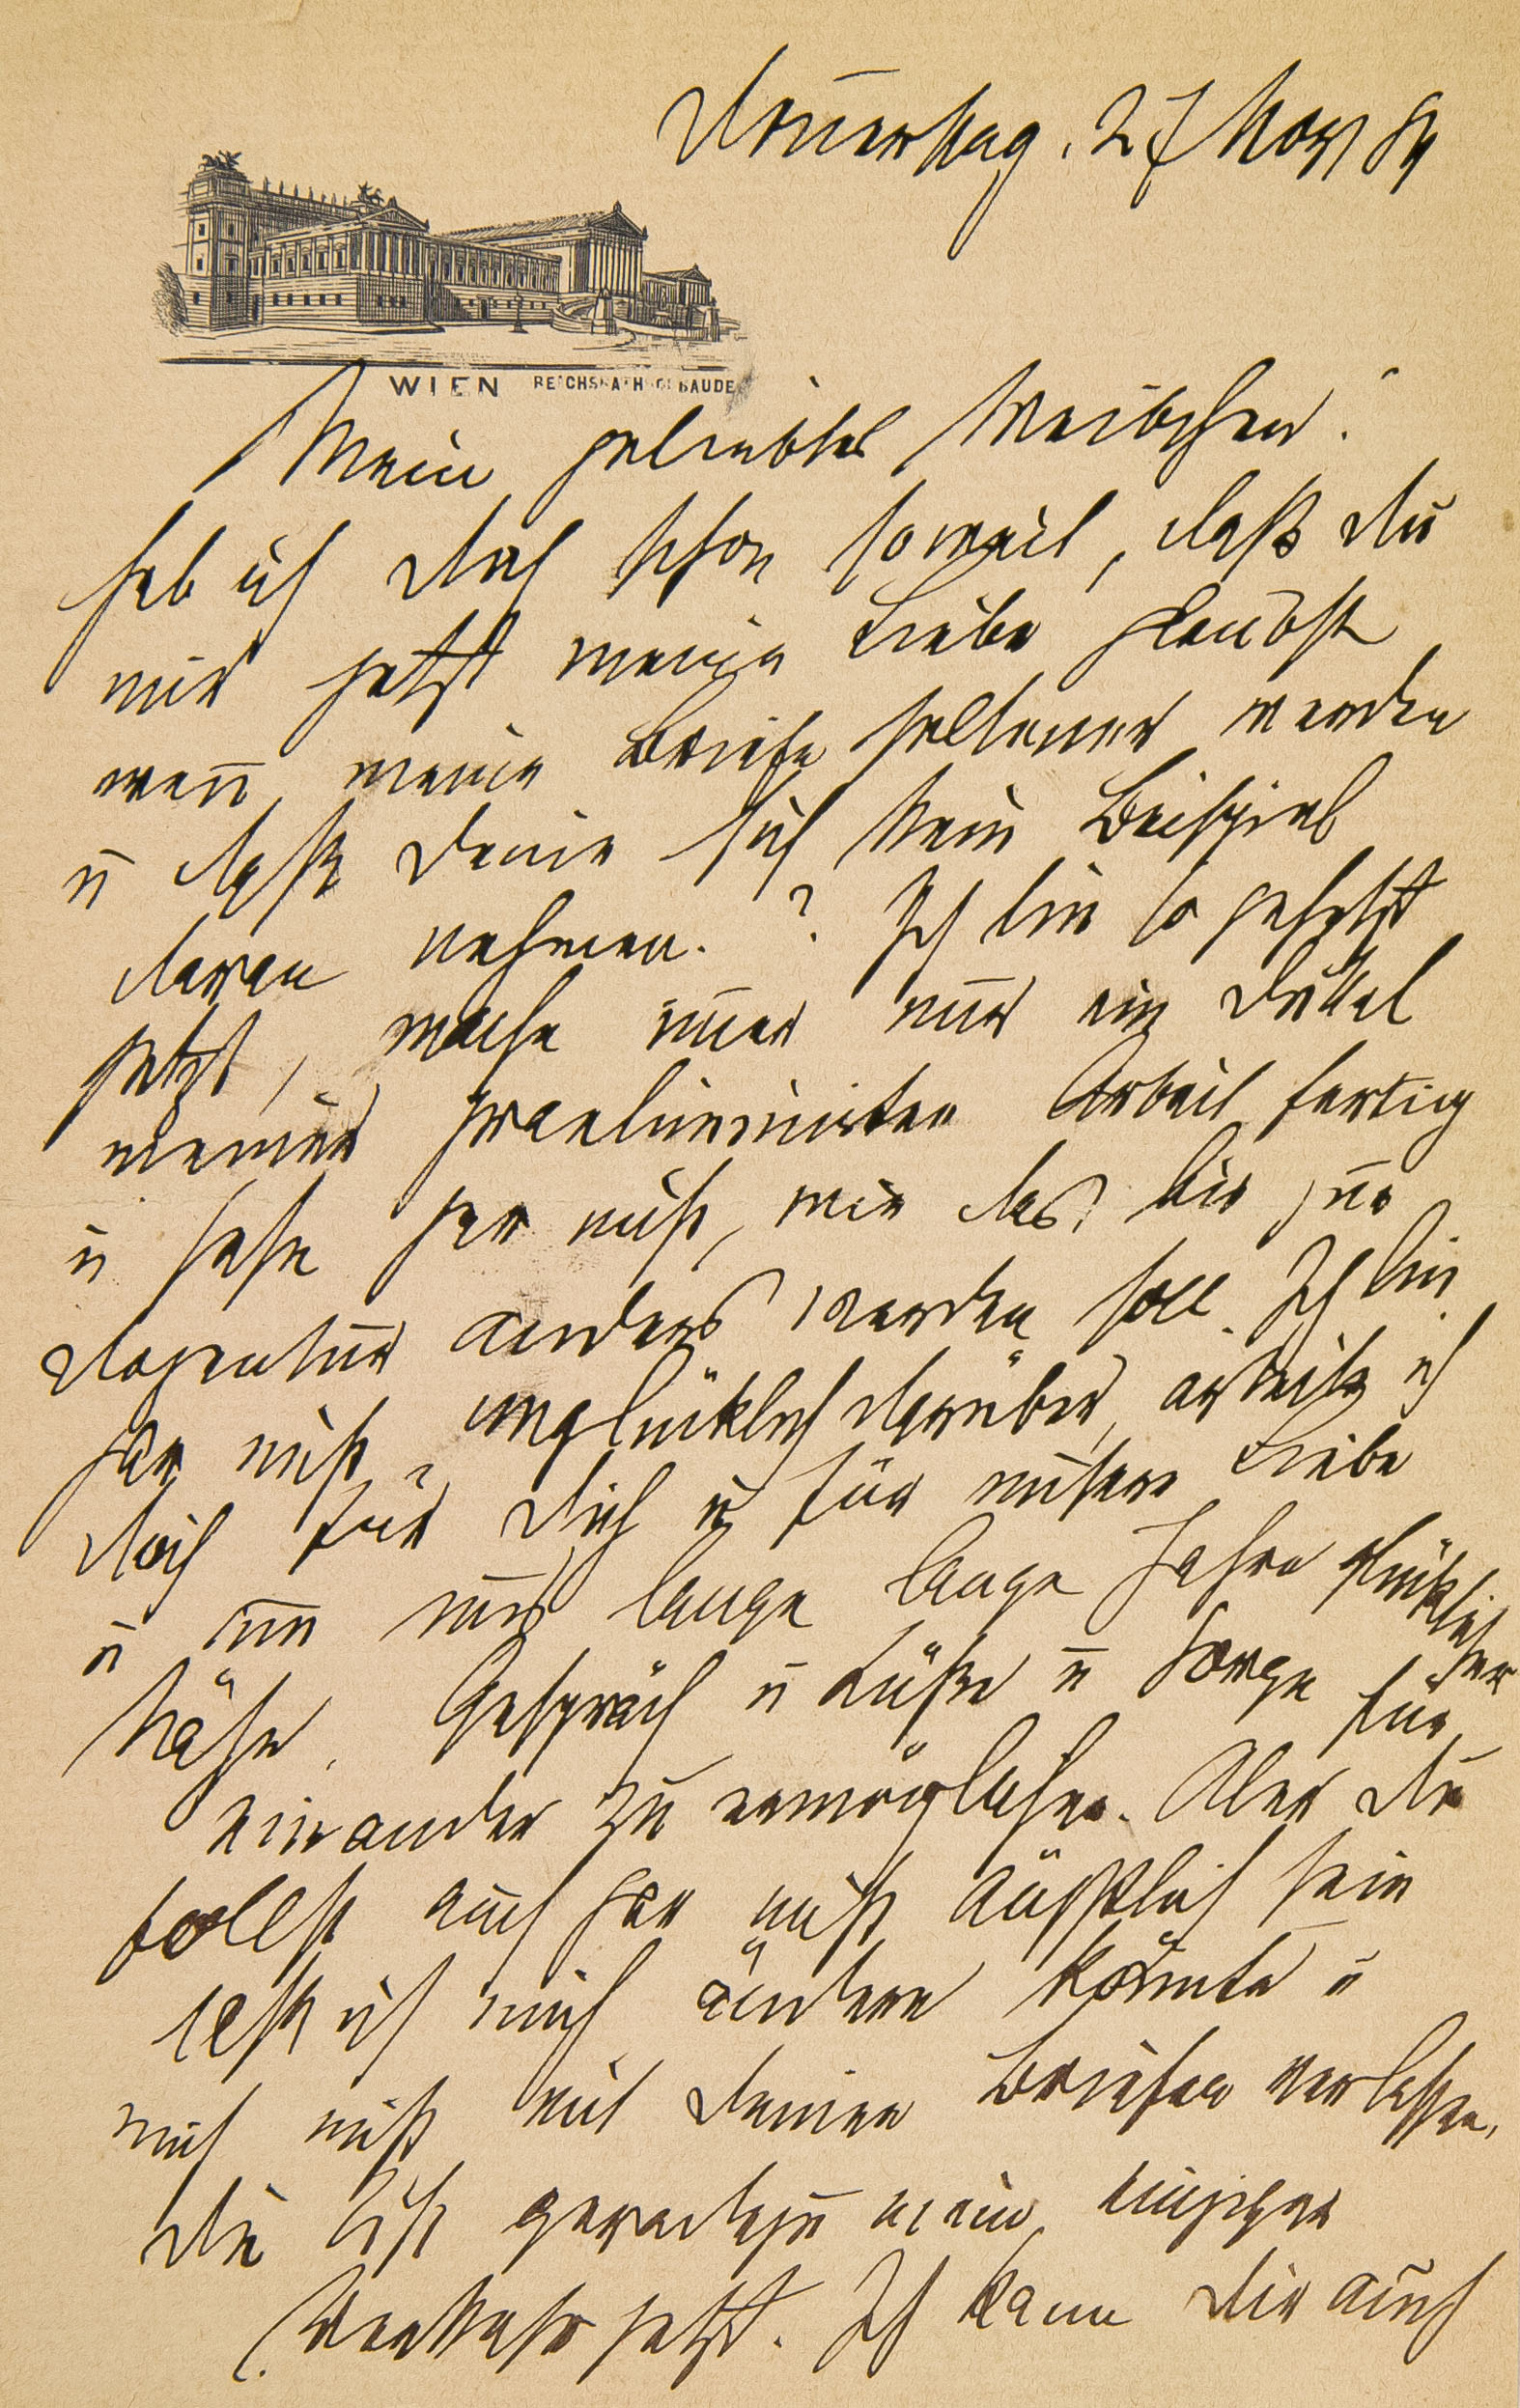 Donnerstag, 27 Nov 84
WIEN REICHSRATHSGEBÄUDE
Mein geliebtes Weibchen!
Hab ich Dich schon soweit, daß Du
mir jetzt meine Liebe glaubst
wenn meine Briefe seltener werden
u daß Deine sich kein Beispiel
daran nehmen.? Ich bin so gehetzt
jetzt, mache immer nur ein Drittel
meiner praeliminirten Arbeit fertig
u sehe gar nicht, wie das bis zur
Dozentur anders werden soll. Ich bin
gar nicht unglücklich darüber, arbeite ich
doch für Dich u für unsere Liebe
u um uns lange lange Jahre glücklicher
Nähe, Gespräch u Küße u Sorge für
einander zu ermöglichen. Aber Du
sollst auch gar nicht ängstlich sein
daß ich mich ändern könnte u
mich nicht mit Deinen Briefen verlassen,
Du bist geradezu mein einziger
Verkehr jetzt. Ich kann Dir auch